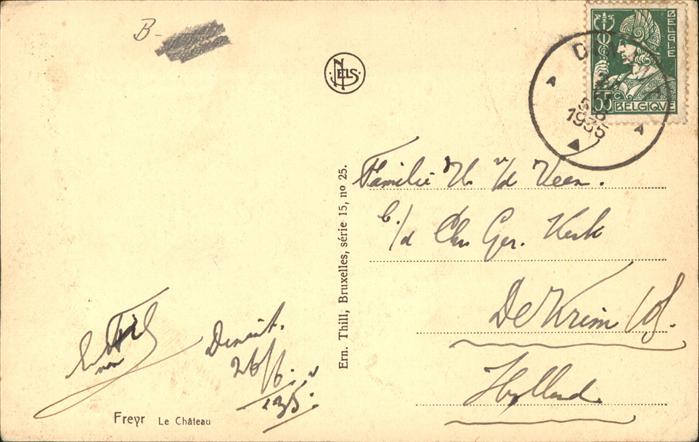 B-
NELS
BELGIE
35c
BELGIQUE
1935
Familie H. v/d Veen.
b/d Chr Ger. Kerk
De Krim /O.
Holland
Dinant.
26/6.
'35.
Freyr Le Château
Ern. Thill, Bruxelles, série 15, nº 25.